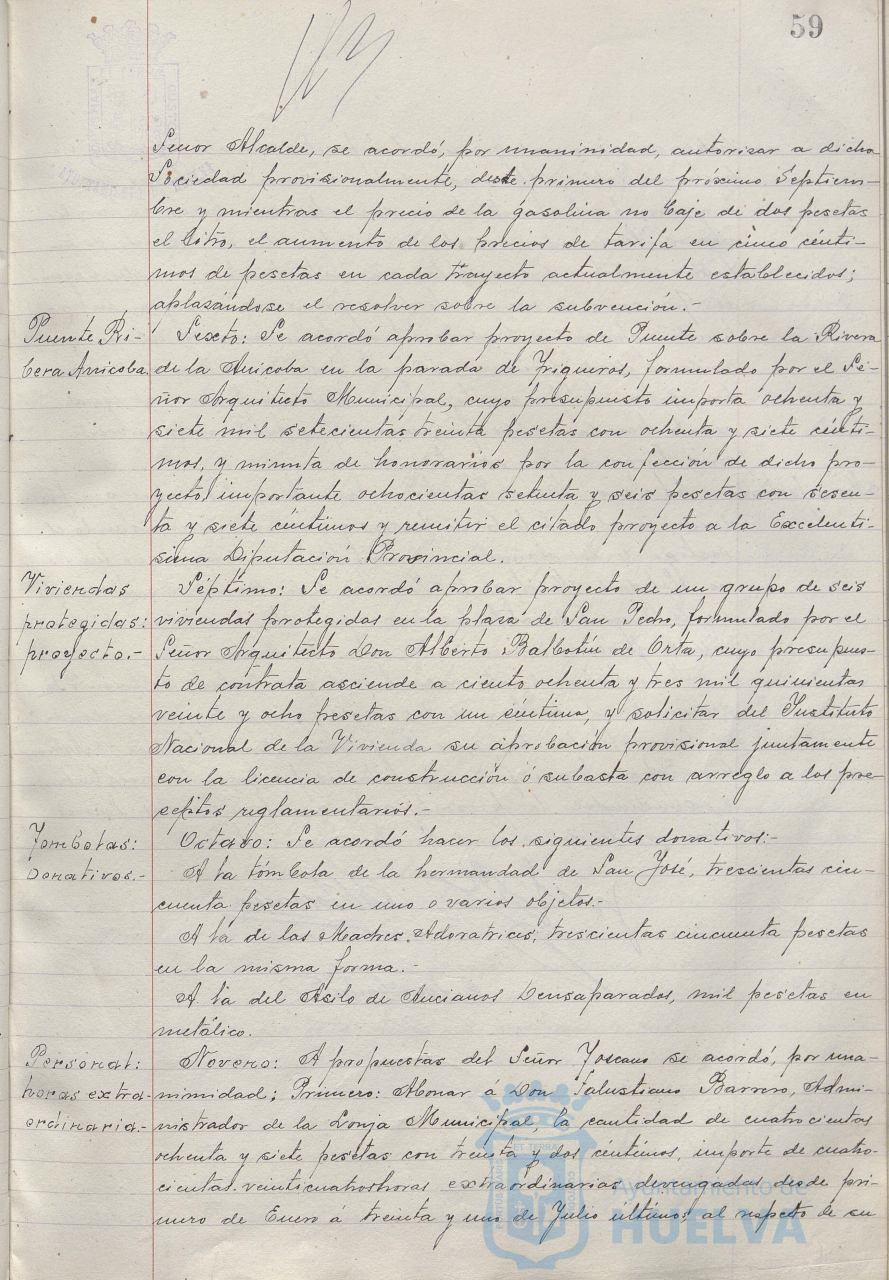 59
Señor Alcalde, se acordó, por unanimidad, autorizar a dicha
Sociedad provisionalmente, desde primero del próximo Septiem-
bre y mientras el precio de la gasolina no baje de dos pesetas
el litro, el aumento de los precios de tarifa en cinco cénti-
mos de pesetas en cada trayecto actualmente establecidos;
aplazándose el resolver sobre la subvención.-
Puente Ri-
bera Anicoba.
Sexto: Se acordó aprobar proyecto de Puente sobre la Rivera
de la Anicoba en la parada de Trigueros, formulado por el Se-
ñor Arquitecto Municipal, cuyo presupuesto importa ochenta y
siete mil setecientas treinta pesetas con ochenta y siete cénti-
mos, y minuta de honorarios por la confección de dicho pro-
yecto importante ochocientas setenta y seis pesetas con sesen-
ta y siete céntimos y remitir el citado proyecto a la Excelenti-
sima Diputación Provincial.
Viviendas
protegidas:
proyecto.-
Séptimo: Se acordó aprobar proyecto de un grupo de seis
viviendas protegidas en la plaza de San Pedro, formulado por el
Señor Arquitecto Don Alberto Balbotín de Orta, cuyo presupues-
to de contrata asciende a ciento ochenta y tres mil quinientas
veinte y ocho pesetas con un céntimo, y solicitar del Instituto
Nacional de la Vivienda su aprobación provisional juntamente
con la licencia de construcción ó subasta con arreglo a los pre-
ceptos reglamentarios.-
Tombolas:
Donativos.-
Octavo: Se acordó hacer los siguientes donativos:-
A la tómbola de la hermandad de San José, trescientas cin-
cuenta pesetas en uno o varios objetos.-
A la de las Madres Adoratrices, trescientas cincuenta pesetas
en la misma forma.-
A la del Asilo de Ancianos Densaparados, mil pesetas en
metálico.
Personal:
horas extra-
ordinaria.-
Noveno: A propuestas del Señor Toscano se acordó, por una-
nimidad; Primero: Abonar á Don Salustiano Barrero, Admi-
nistrador de la Lonja Municipal, la cantidad de cuatrocientas
ochenta y siete pesetas con treinta y dos céntimos, importe de cuatro-
cientas veinticuatro horas extraordinarias devengadas desde pri-
mero de Enero á treinta y uno de Julio últimos, al respecto de su
Ayuntamiento de
HUELVA